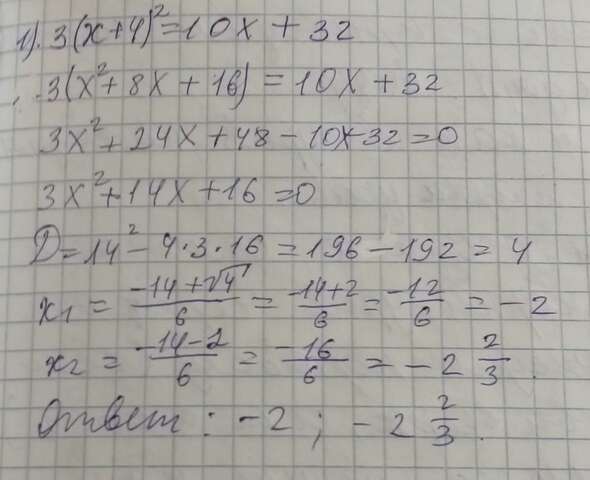 1). 3(x+4)²=10x+32
3(x²+8x+16)=10x+32
3x²+24x+48-10x-32=0
3x²+14x+16=0
D=14²-4·3·16=196-192=4
x₁ = (-14+√4)/6 = (-14+2)/6 = -12/6 = -2
x₂ = (-14-2)/6 = -16/6 = -2 2/3.
Ответ: -2; -2 2/3.